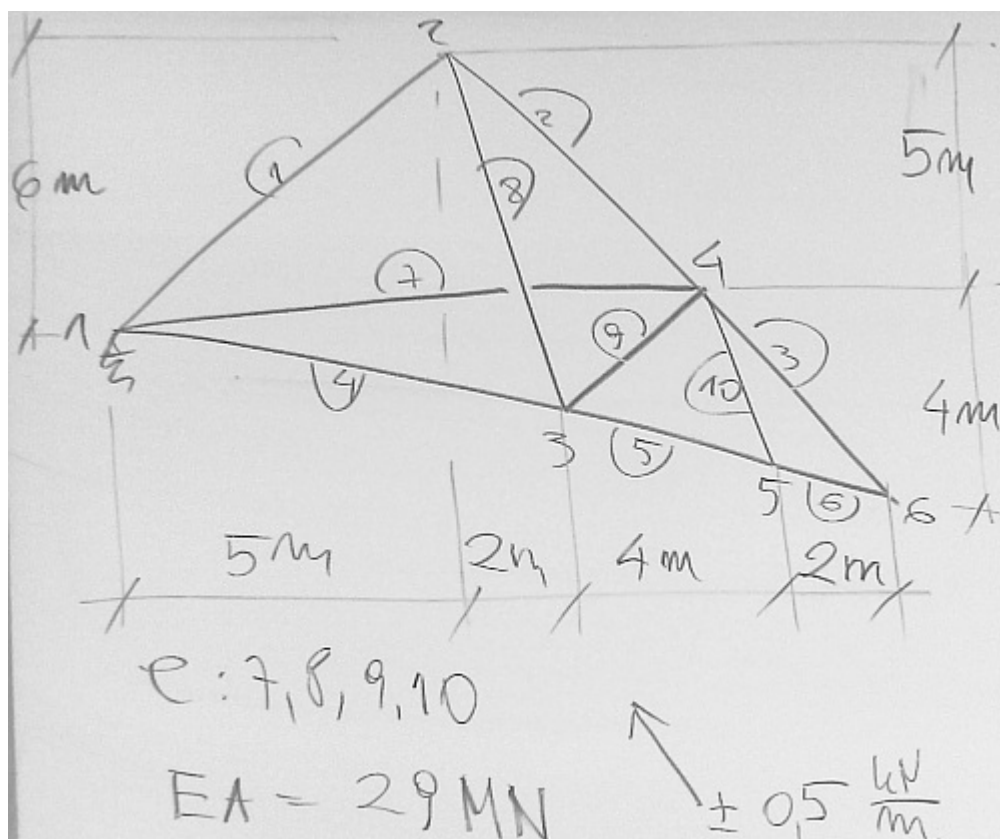 2
6m
1
2
5m
8
7
4
1
9
3
4
10
4m
3
5
5
6
6
5m
2m
4m
2m
e: 7, 8, 9, 10
EA = 29 MN
± 0,5 kN/m